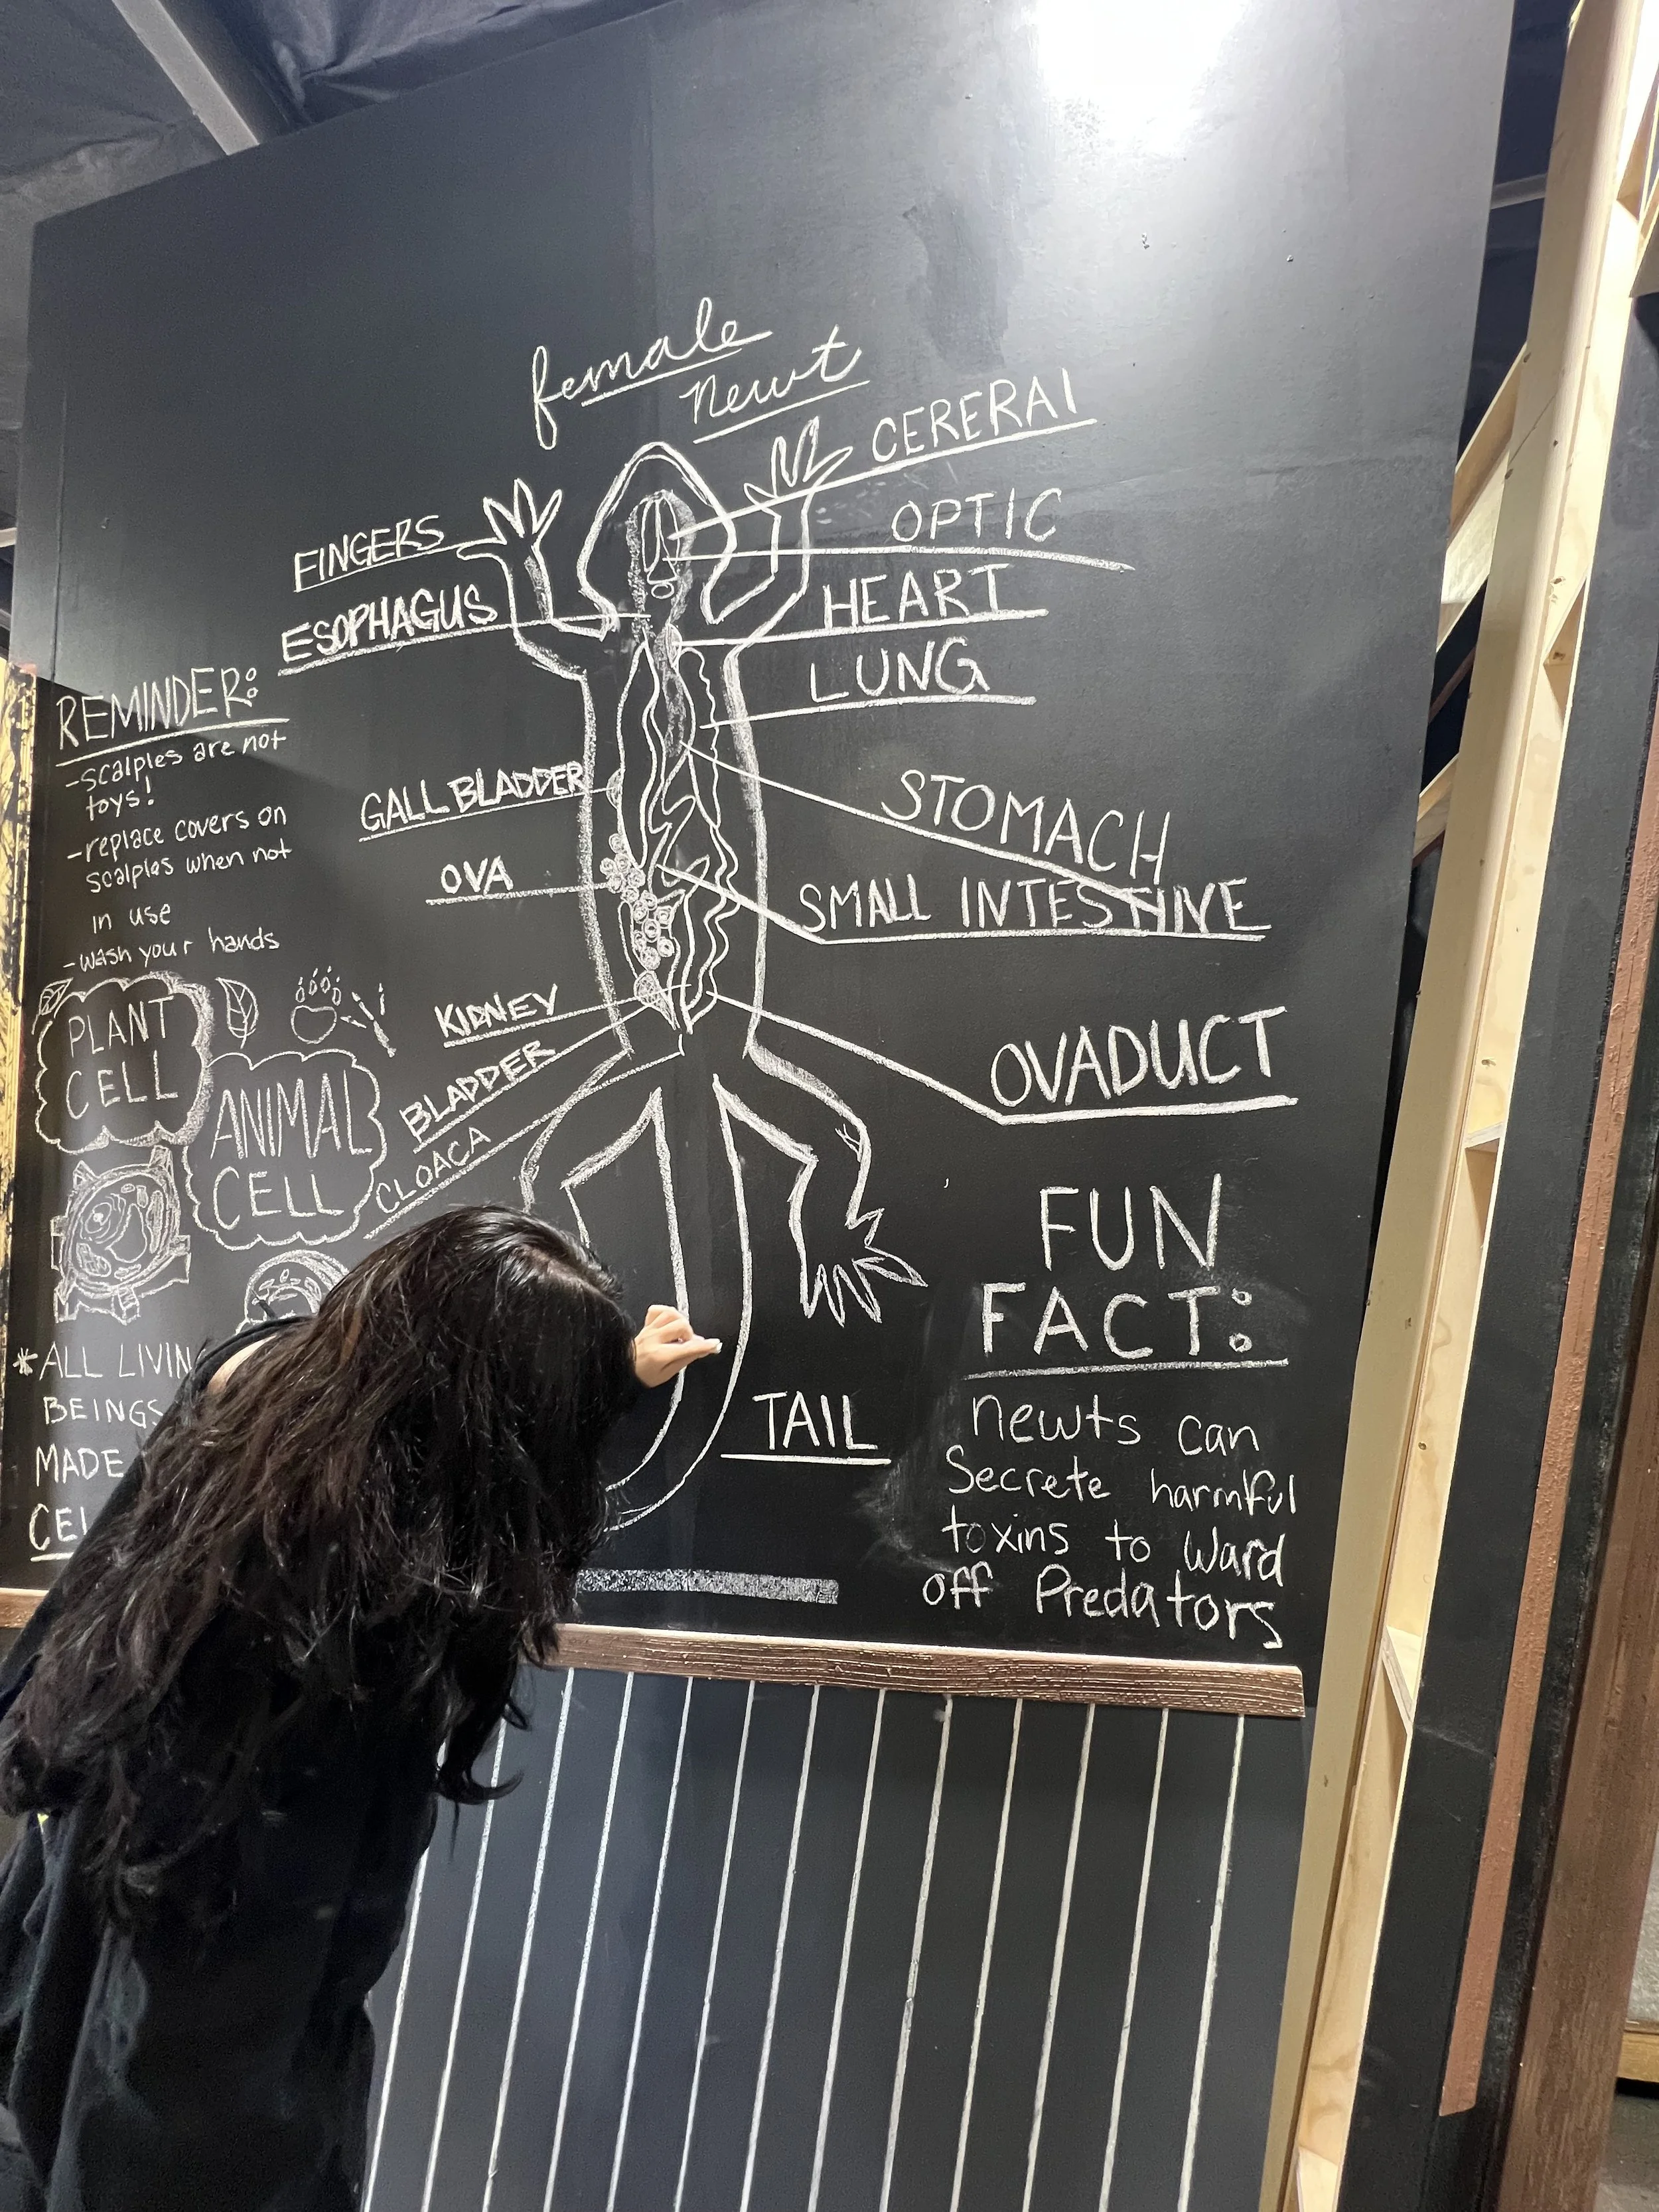 female
newt
CERERAl
OPTIC
HEART
LUNG
STOMACH
SMALL INTESTINE
OVADUCT
FINGERS
ESOPHAGUS
GALL BLADDER
OVA
KIDNEY
BLADDER
CLOACA
TAIL
REMINDER:
-scalples are not
toys!
-replace covers on
scalples when not
in use
-wash your hands
PLANT
CELL
ANIMAL
CELL
*ALL LIVIN
BEINGS
MADE
CEL
FUN
FACT:
newts can
Secrete harmful
toxins to Ward
off Predators